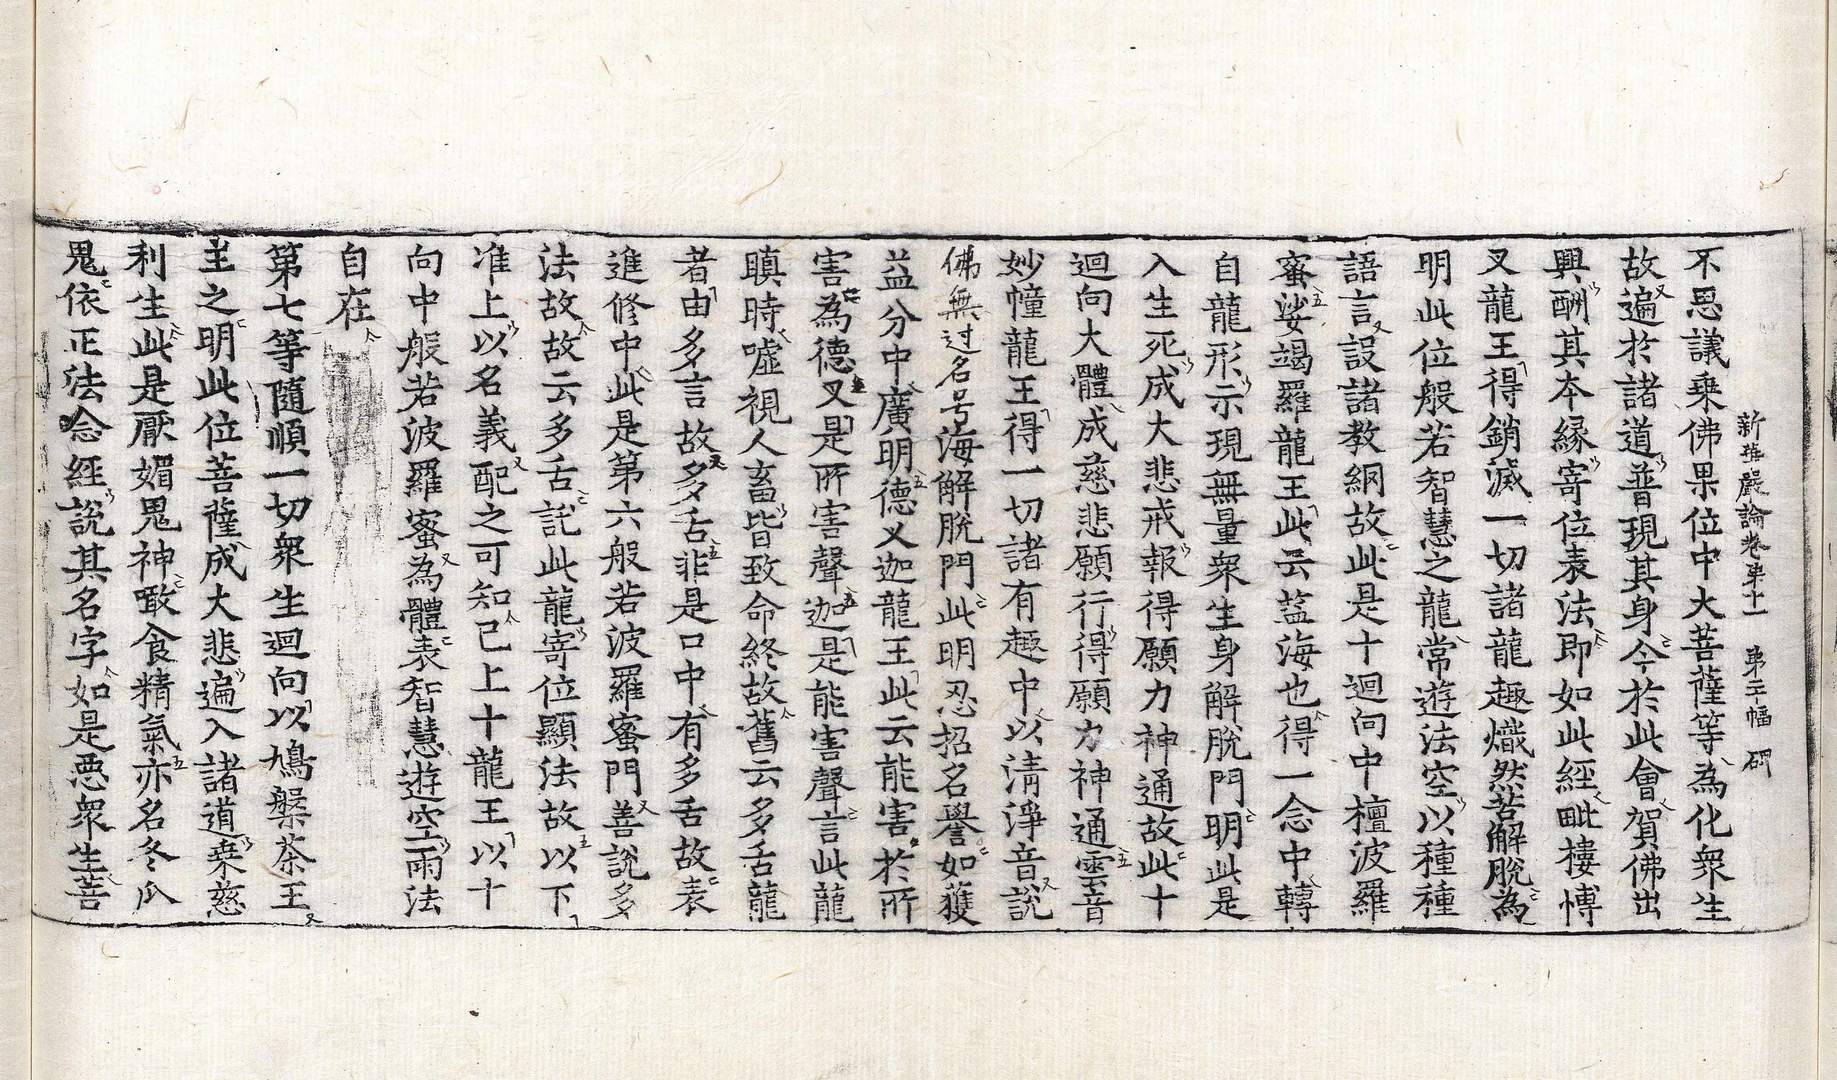 新華嚴論卷第十一 第二十幅 碑
不思議乘佛果位中大菩薩等為化衆生
故遍於諸道普現其身今於此會賀佛出
興酬其本緣寄位表法即如此經毗樓博
叉龍王得銷滅一切諸龍趣熾然苦解脫為
明此位般若智慧之龍常遊法空以種種
語言設諸教網故此是十迴向中檀波羅
蜜娑竭羅龍王此云鹹海也得一念中轉
自龍形示現無量衆生身解脫門明此是
入生死成大悲戒報得願力神通故此十
迴向大體成慈悲願行得願力神通雲音
妙幢龍王得一切諸有趣中以清淨音說
佛無过名号海解脫門此明忍招名譽如獲
益分中廣明德叉迦龍王此云能害於所
害為德叉是所害聲迦是能害聲言此龍
瞋時噓視人畜皆致命終故舊云多舌龍
者由多言故多舌非是口中有多舌故表
進修中此是第六般若波羅蜜門善說多
法故故云多舌託此龍寄位顯法故以下
准上以名義配之可知已上十龍王以十
向中般若波羅蜜為體表智慧遊空雨法
自在
第七等隨順一切衆生迴向以鳩槃荼王
主之明此位菩薩成大悲遍入諸道乘慈
利生此是厭媚鬼神噉食精氣亦名冬瓜
鬼依正法念經說其名字如是惡衆生菩